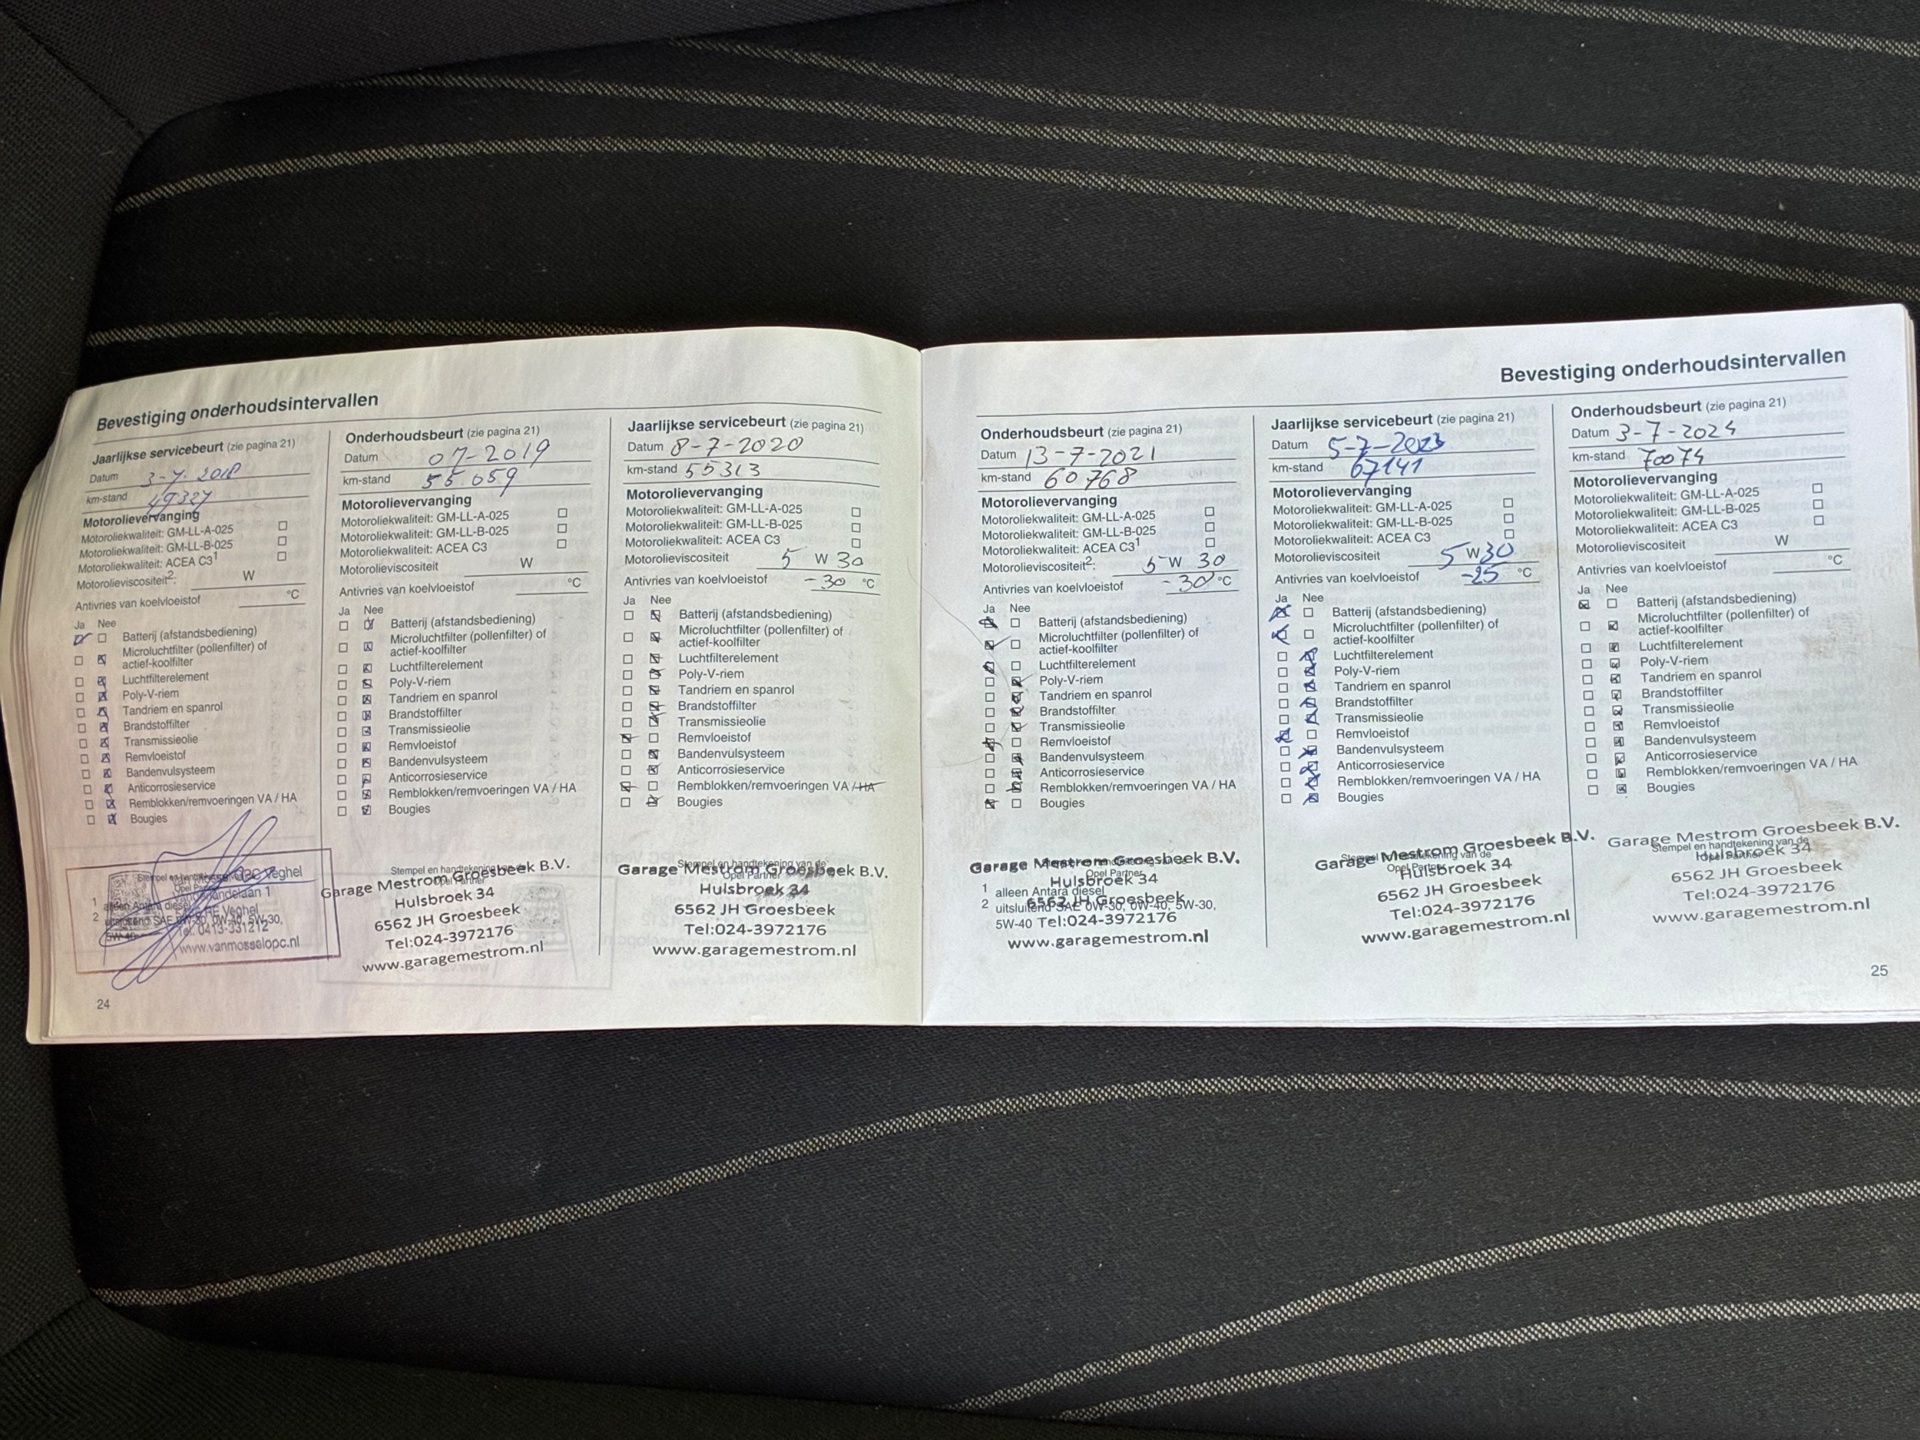 Bevestiging onderhoudsintervallen
Jaarlijkse servicebeurt (zie pagina 21)
Datum 3-7-2018
km-stand 49327
Motorolievervanging
Motoroliekwaliteit: GM-LL-A-025
Motoroliekwaliteit: GM-LL-B-025
Motoroliekwaliteit: ACEA C3¹
Motorolieviscositeit²: W
Antivries van koelvloeistof °C
Ja Nee
Batterij (afstandsbediening)
Microluchtfilter (pollenfilter) of
actief-koolfilter
Luchtfilterelement
Poly-V-riem
Tandriem en spanrol
Brandstoffilter
Transmissieolie
Remvloeistof
Bandenvulsysteem
Anticorrosieservice
Remblokken/remvoeringen VA / HA
Bougies
Veghel
1 alleen Antara diesel
2 uitsluitend SAE 0W-30, 0W-40, 5W-30,
5W-40
Tel. 0413-331212
www.vanmosselopc.nl
24
Onderhoudsbeurt (zie pagina 21)
Datum 07-2019
km-stand 55.059
Motorolievervanging
Motoroliekwaliteit: GM-LL-A-025
Motoroliekwaliteit: GM-LL-B-025
Motoroliekwaliteit: ACEA C3
Motorolieviscositeit W
Antivries van koelvloeistof °C
Ja Nee
Batterij (afstandsbediening)
Microluchtfilter (pollenfilter) of
actief-koolfilter
Luchtfilterelement
Poly-V-riem
Tandriem en spanrol
Brandstoffilter
Transmissieolie
Remvloeistof
Bandenvulsysteem
Anticorrosieservice
Remblokken/remvoeringen VA / HA
Bougies
Stempel en handtekening van de
Opel Partner
Garage Mestrom Groesbeek B.V.
Hulsbroek 34
6562 JH Groesbeek
Tel:024-3972176
www.garagemestrom.nl
Jaarlijkse servicebeurt (zie pagina 21)
Datum 8-7-2020
km-stand 55313
Motorolievervanging
Motoroliekwaliteit: GM-LL-A-025
Motoroliekwaliteit: GM-LL-B-025
Motoroliekwaliteit: ACEA C3
Motorolieviscositeit 5 W 30
Antivries van koelvloeistof -30 °C
Ja Nee
Batterij (afstandsbediening)
Microluchtfilter (pollenfilter) of
actief-koolfilter
Luchtfilterelement
Poly-V-riem
Tandriem en spanrol
Brandstoffilter
Transmissieolie
Remvloeistof
Bandenvulsysteem
Anticorrosieservice
Remblokken/remvoeringen VA / HA
Bougies
Stempel en handtekening van de
Opel Partner
Garage Mestrom Groesbeek B.V.
Hulsbroek 34
6562 JH Groesbeek
Tel:024-3972176
www.garagemestrom.nl
Bevestiging onderhoudsintervallen
Onderhoudsbeurt (zie pagina 21)
Datum 13-7-2021
km-stand 60768
Motorolievervanging
Motoroliekwaliteit: GM-LL-A-025
Motoroliekwaliteit: GM-LL-B-025
Motoroliekwaliteit: ACEA C3¹
Motorolieviscositeit²: 5 W 30
Antivries van koelvloeistof -30 °C
Ja Nee
Batterij (afstandsbediening)
Microluchtfilter (pollenfilter) of
actief-koolfilter
Luchtfilterelement
Poly-V-riem
Tandriem en spanrol
Brandstoffilter
Transmissieolie
Remvloeistof
Bandenvulsysteem
Anticorrosieservice
Remblokken/remvoeringen VA / HA
Bougies
Garage Mestrom Groesbeek B.V.
Opel Partner
Hulsbroek 34
1 alleen Antara diesel
6562 JH Groesbeek
2 uitsluitend SAE 0W-30, 0W-40, 5W-30,
5W-40
Tel:024-3972176
www.garagemestrom.nl
Jaarlijkse servicebeurt (zie pagina 21)
Datum 5-7-2023
km-stand 67141
Motorolievervanging
Motoroliekwaliteit: GM-LL-A-025
Motoroliekwaliteit: GM-LL-B-025
Motoroliekwaliteit: ACEA C3
Motorolieviscositeit 5 W 30
Antivries van koelvloeistof -25 °C
Ja Nee
Batterij (afstandsbediening)
Microluchtfilter (pollenfilter) of
actief-koolfilter
Luchtfilterelement
Poly-V-riem
Tandriem en spanrol
Brandstoffilter
Transmissieolie
Remvloeistof
Bandenvulsysteem
Anticorrosieservice
Remblokken/remvoeringen VA / HA
Bougies
Stempel en handtekening van de
Opel Partner
Garage Mestrom Groesbeek B.V.
Hulsbroek 34
6562 JH Groesbeek
Tel:024-3972176
www.garagemestrom.nl
Onderhoudsbeurt (zie pagina 21)
Datum 3-7-2024
km-stand 70074
Motorolievervanging
Motoroliekwaliteit: GM-LL-A-025
Motoroliekwaliteit: GM-LL-B-025
Motoroliekwaliteit: ACEA C3
Motorolieviscositeit W
Antivries van koelvloeistof °C
Ja Nee
Batterij (afstandsbediening)
Microluchtfilter (pollenfilter) of
actief-koolfilter
Luchtfilterelement
Poly-V-riem
Tandriem en spanrol
Brandstoffilter
Transmissieolie
Remvloeistof
Bandenvulsysteem
Anticorrosieservice
Remblokken/remvoeringen VA / HA
Bougies
Garage Mestrom Groesbeek B.V.
Stempel en handtekening van de
Opel Partner
Hulsbroek 34
6562 JH Groesbeek
Tel:024-3972176
www.garagemestrom.nl
25